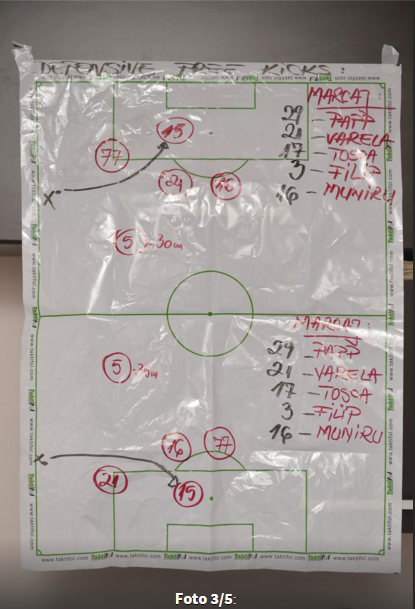 DEFENSIVE FREE KICKS:
MARCAJ
29 - PAPP
21 - VARELA
17 - TOSCA
3 - FILIP
16 - MUNIRU
15
77
X
21
16
5 - 30m
MARCAJ:
29 - PAPP
21 - VARELA
17 - TOSCA
3 - FILIP
16 - MUNIRU
5 - 30m
16
77
X
21
15
www.taktifol.com
Taktifol
Foto 3/5: